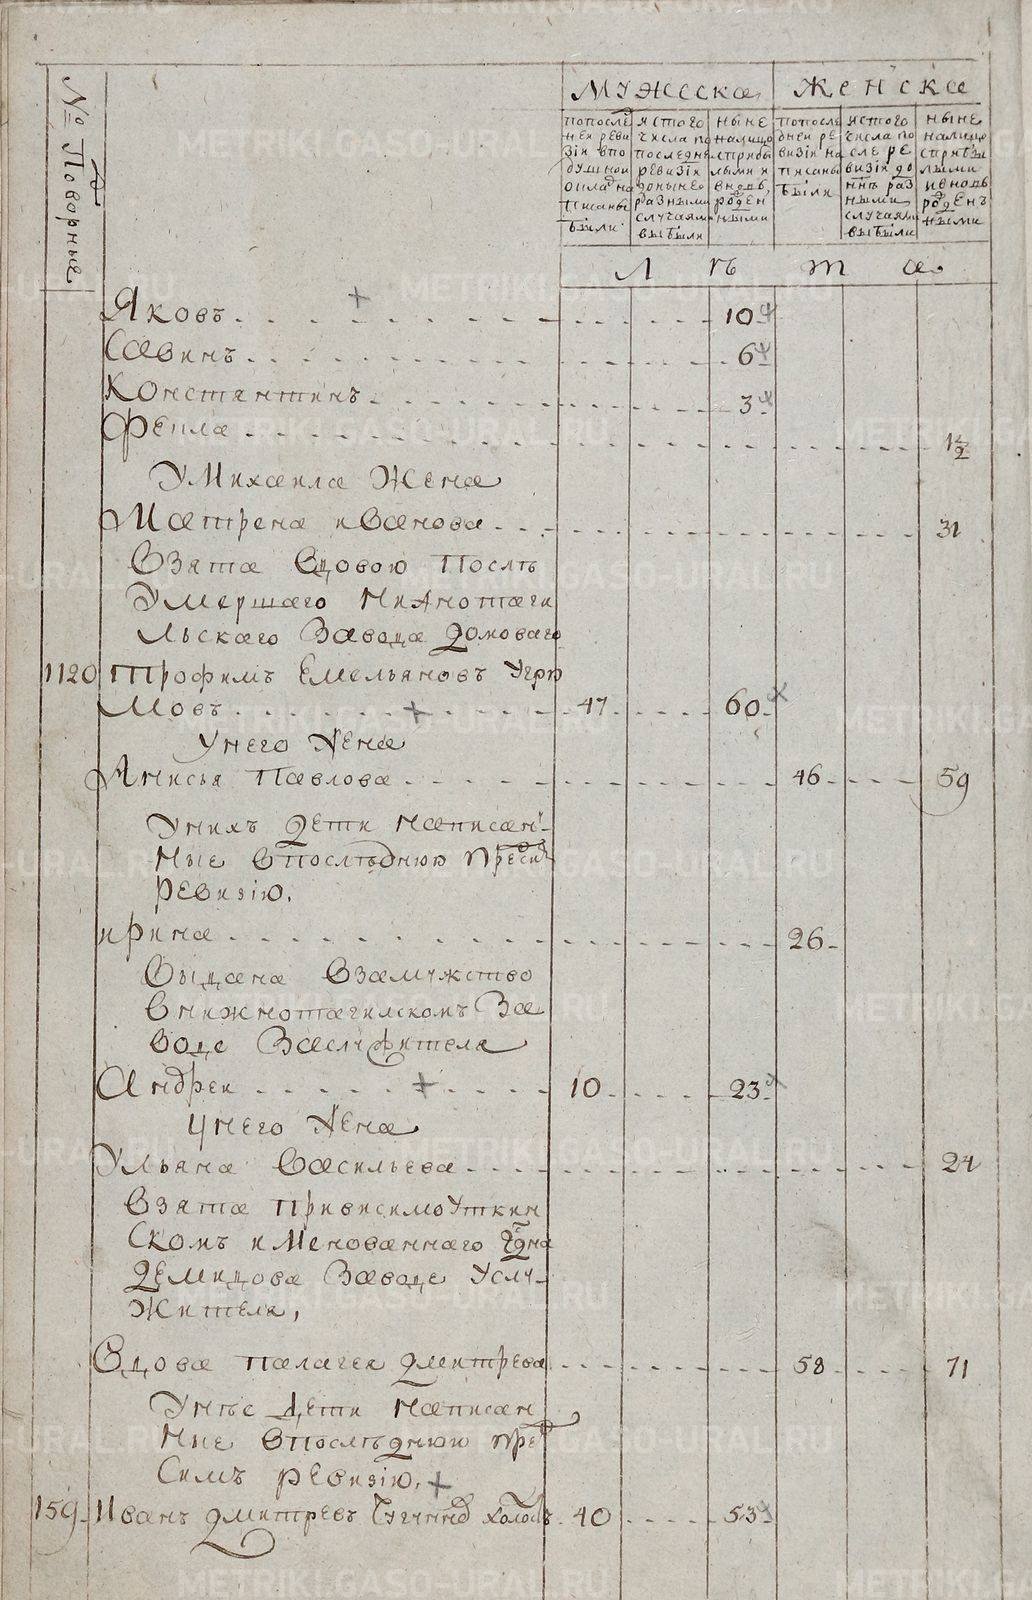 № Подворные
Мужеска
Женска
попоследней ревизiи вподушной окладъ написаны были
изтого числа по последней ревизiи доныне разными случаями выбыли
ныне налицо сприбылыми и вновь рожденными
попоследней ревизiи написаны были
изтого числа после ревизiи до ныне разными случаями выбыли
ныне налицо сприбылыми ивновь рожденными
Лѣта
Яковъ 10
Савинъ 6
Константинъ 3
Фекла 1 1/2
УМихаила Жена
Матрена иванова 31
Взята Вдовою Послѣ
Умершаго Нижнотаги
льскаго Завода Домоваго
1120 Трофимъ Емельяновъ Угрю
мовъ 47 60
Унего Жена
Анисья Павлова 46 59
Унихъ Дети Написан
ные Впоследнюю Предсимъ
Ревизiю.
ирина 26
Выдана Взамужство
Внижнотагилскомъ За
воде Заслужителя
Андреи 10 23
Унего Жена
Ульяна Васильева 24
Взята Привисимоуткин
Скомъ и Менованнаго
Демидова Заводе Услу-
жителя,
Вдова Палагея Дмитрева 58 71
Унѣе Дети Написан
ные Впоследнюю Пред
Симъ Ревизiю.
159 Иванъ Дмитревъ 40 53
METRIKI.GASO-URAL.RU